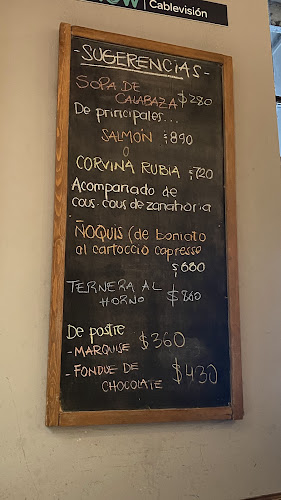 Cablevisión
- SUGERENCIAS -
SOPA DE
CALABAZA $280
De principales...
SALMÓN $890
O
CORVINA RUBIA $720
Acompañado de
cous-cous de zanahoria
ÑOQUIS (de boniato
al cartoccio capresse
$680
TERNERA AL
HORNO $860
De postre
- MARQUISE $360
- FONDUE DE
CHOCOLATE $430